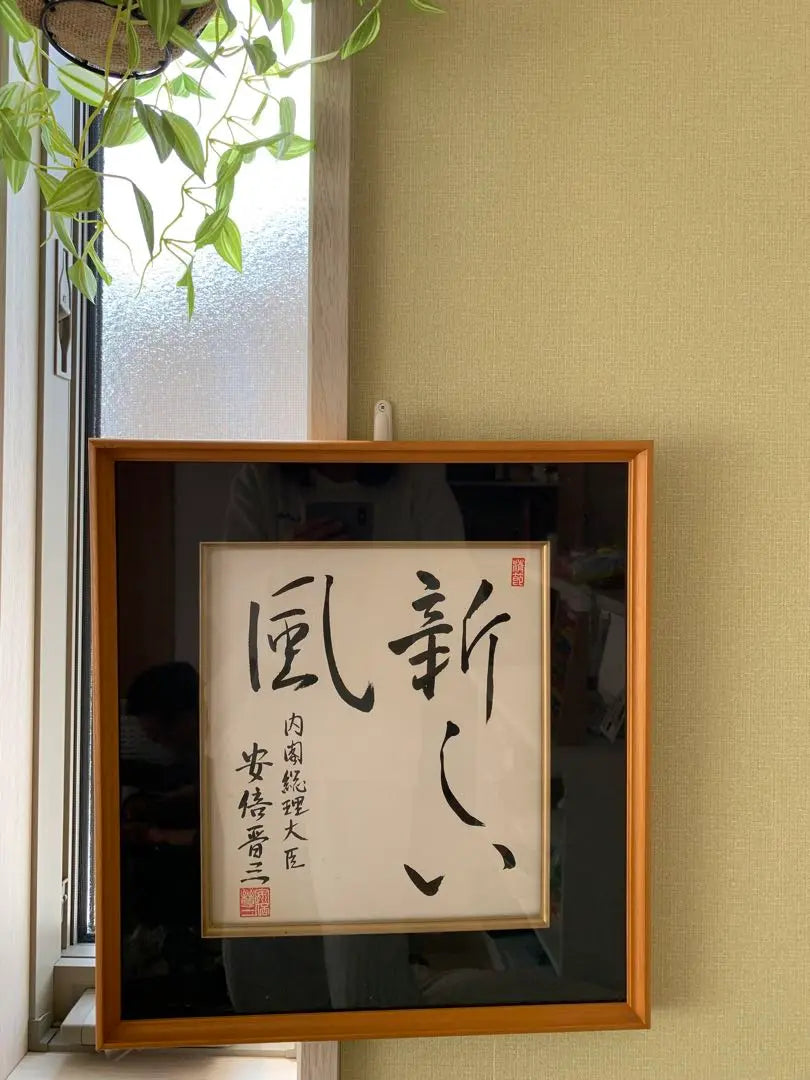 新しい
風
内閣総理大臣
安倍晋三